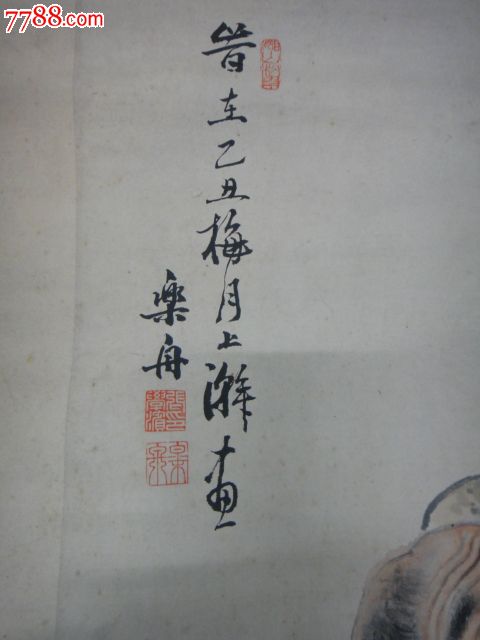 7788.com
旹在乙丑梅月上澣画
樂舟